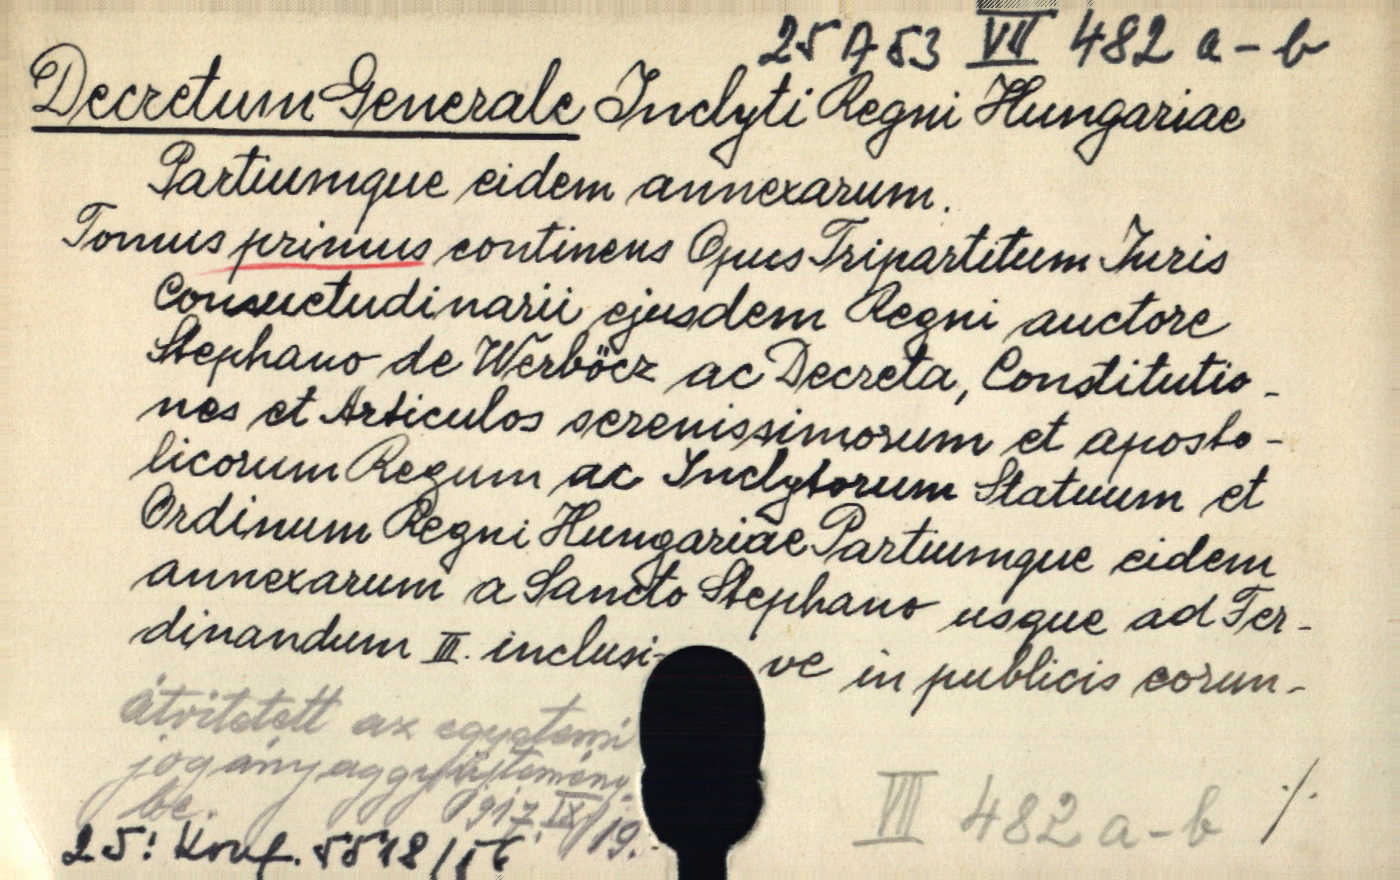 25 A 53 VII 482 a-b
Decretum Generale Inclyti Regni Hungariae
Partiumque eidem annexarum.
Tomus primus continens Opus Tripartitum Iuris
Consuetudinarii ejusdem Regni auctore
Stephano de Werböcz ac Decreta, Constitutio-
nes et Articulos serenissimorum et aposto-
licorum Regum ac Inclytorum Statuum et
Ordinum Regni Hungariae Partiumque eidem
annexarum a Sancto Stephano usque ad Fer-
dinandum III. inclusi- ve in publicis eorun-
átvitetett az egyetemi
jogi anyaggyűjtemény-
be. 1917. IX/19.
VII 482 a-b ./.
25: Konf. 5518/